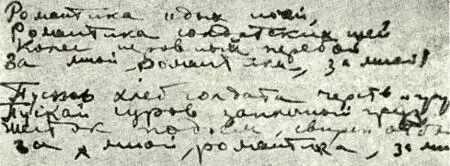 Романтика
Романтика солдатских щей
Колес неровный перебой
За мной, романтика, за мной!
Пускай хлеб солдата черств
Пускай суров заплечный груз
за мной, романтика, за мн